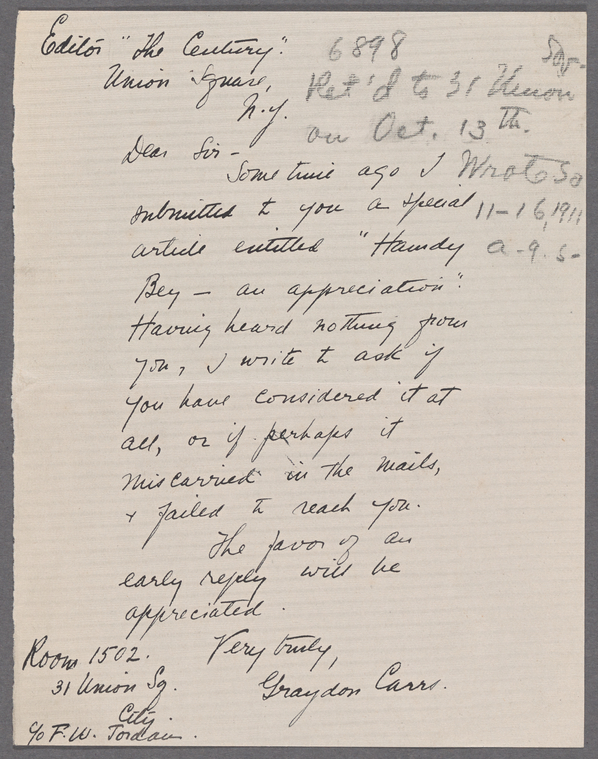 Editor "The Century".
Union Square,
N.Y.
6898
Ret'd to 31 Union
on Oct. 13th.
Wrote So
11-16, 1911
a-g. s-
Dear Sir -
Some time ago I
submitted to you a special
article entitled "Hamdy
Bey - an appreciation".
Having heard nothing from
you, I write to ask if
you have considered it at
all, or if perhaps it
miscarried in the mails,
& failed to reach you.
The favor of an
early reply will be
appreciated.
Very truly,
Graydon Carrs.
Room 1502.
31 Union Sq.
City.
c/o F. W. Jordan.